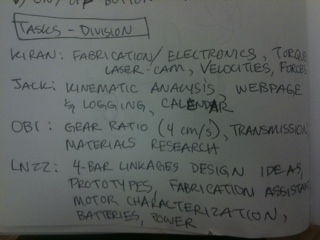 ON/OFF BUTTON
TASKS - DIVISION
KIRAN: FABRICATION/ELECTRONICS, TORQUE
LASER-CAM, VELOCITIES, FORCES
JACK: KINEMATIC ANALYSIS, WEBPAGE
& LOGGING, CALENDAR
OBI: GEAR RATIO (4 cm/s), TRANSMISSION
MATERIALS RESEARCH
LNZZ: 4-BAR LINKAGES DESIGN IDEAS,
PROTOTYPES, FABRICATION ASSISTAN
MOTOR CHARACTERIZATION,
BATTERIES, POWER